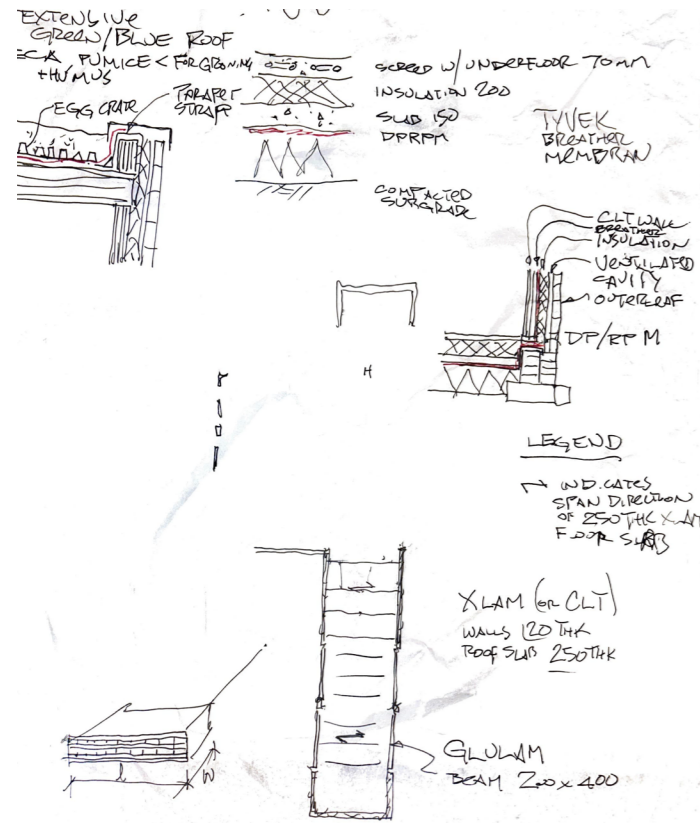 EXTENSIVE
GREEN/BLUE ROOF
PUMICE < FOR GRONING
+HUMUS
EGG CRATE
PARAPET
STRAPT
SCREED W/UNDERFLOOR 70MM
INSULATION 200
SLAB 150
DPRPM
COMPACTED
SUBGRADE
TYVEK
BREATHER
MEMBRAN
CLT WALL
BREATHER
INSULATION
VENTILATED
CAVITY
OUTERLEAF
DP/RPM
H
LEGEND
INDICATES
SPAN DIRECTION
OF 250 THK XLAM
FLOOR SLAB
XLAM (OR CLT)
WALLS 120 THK
ROOF SLAB 250THK
GLULAM
BEAM 200 x 400
l
l
W